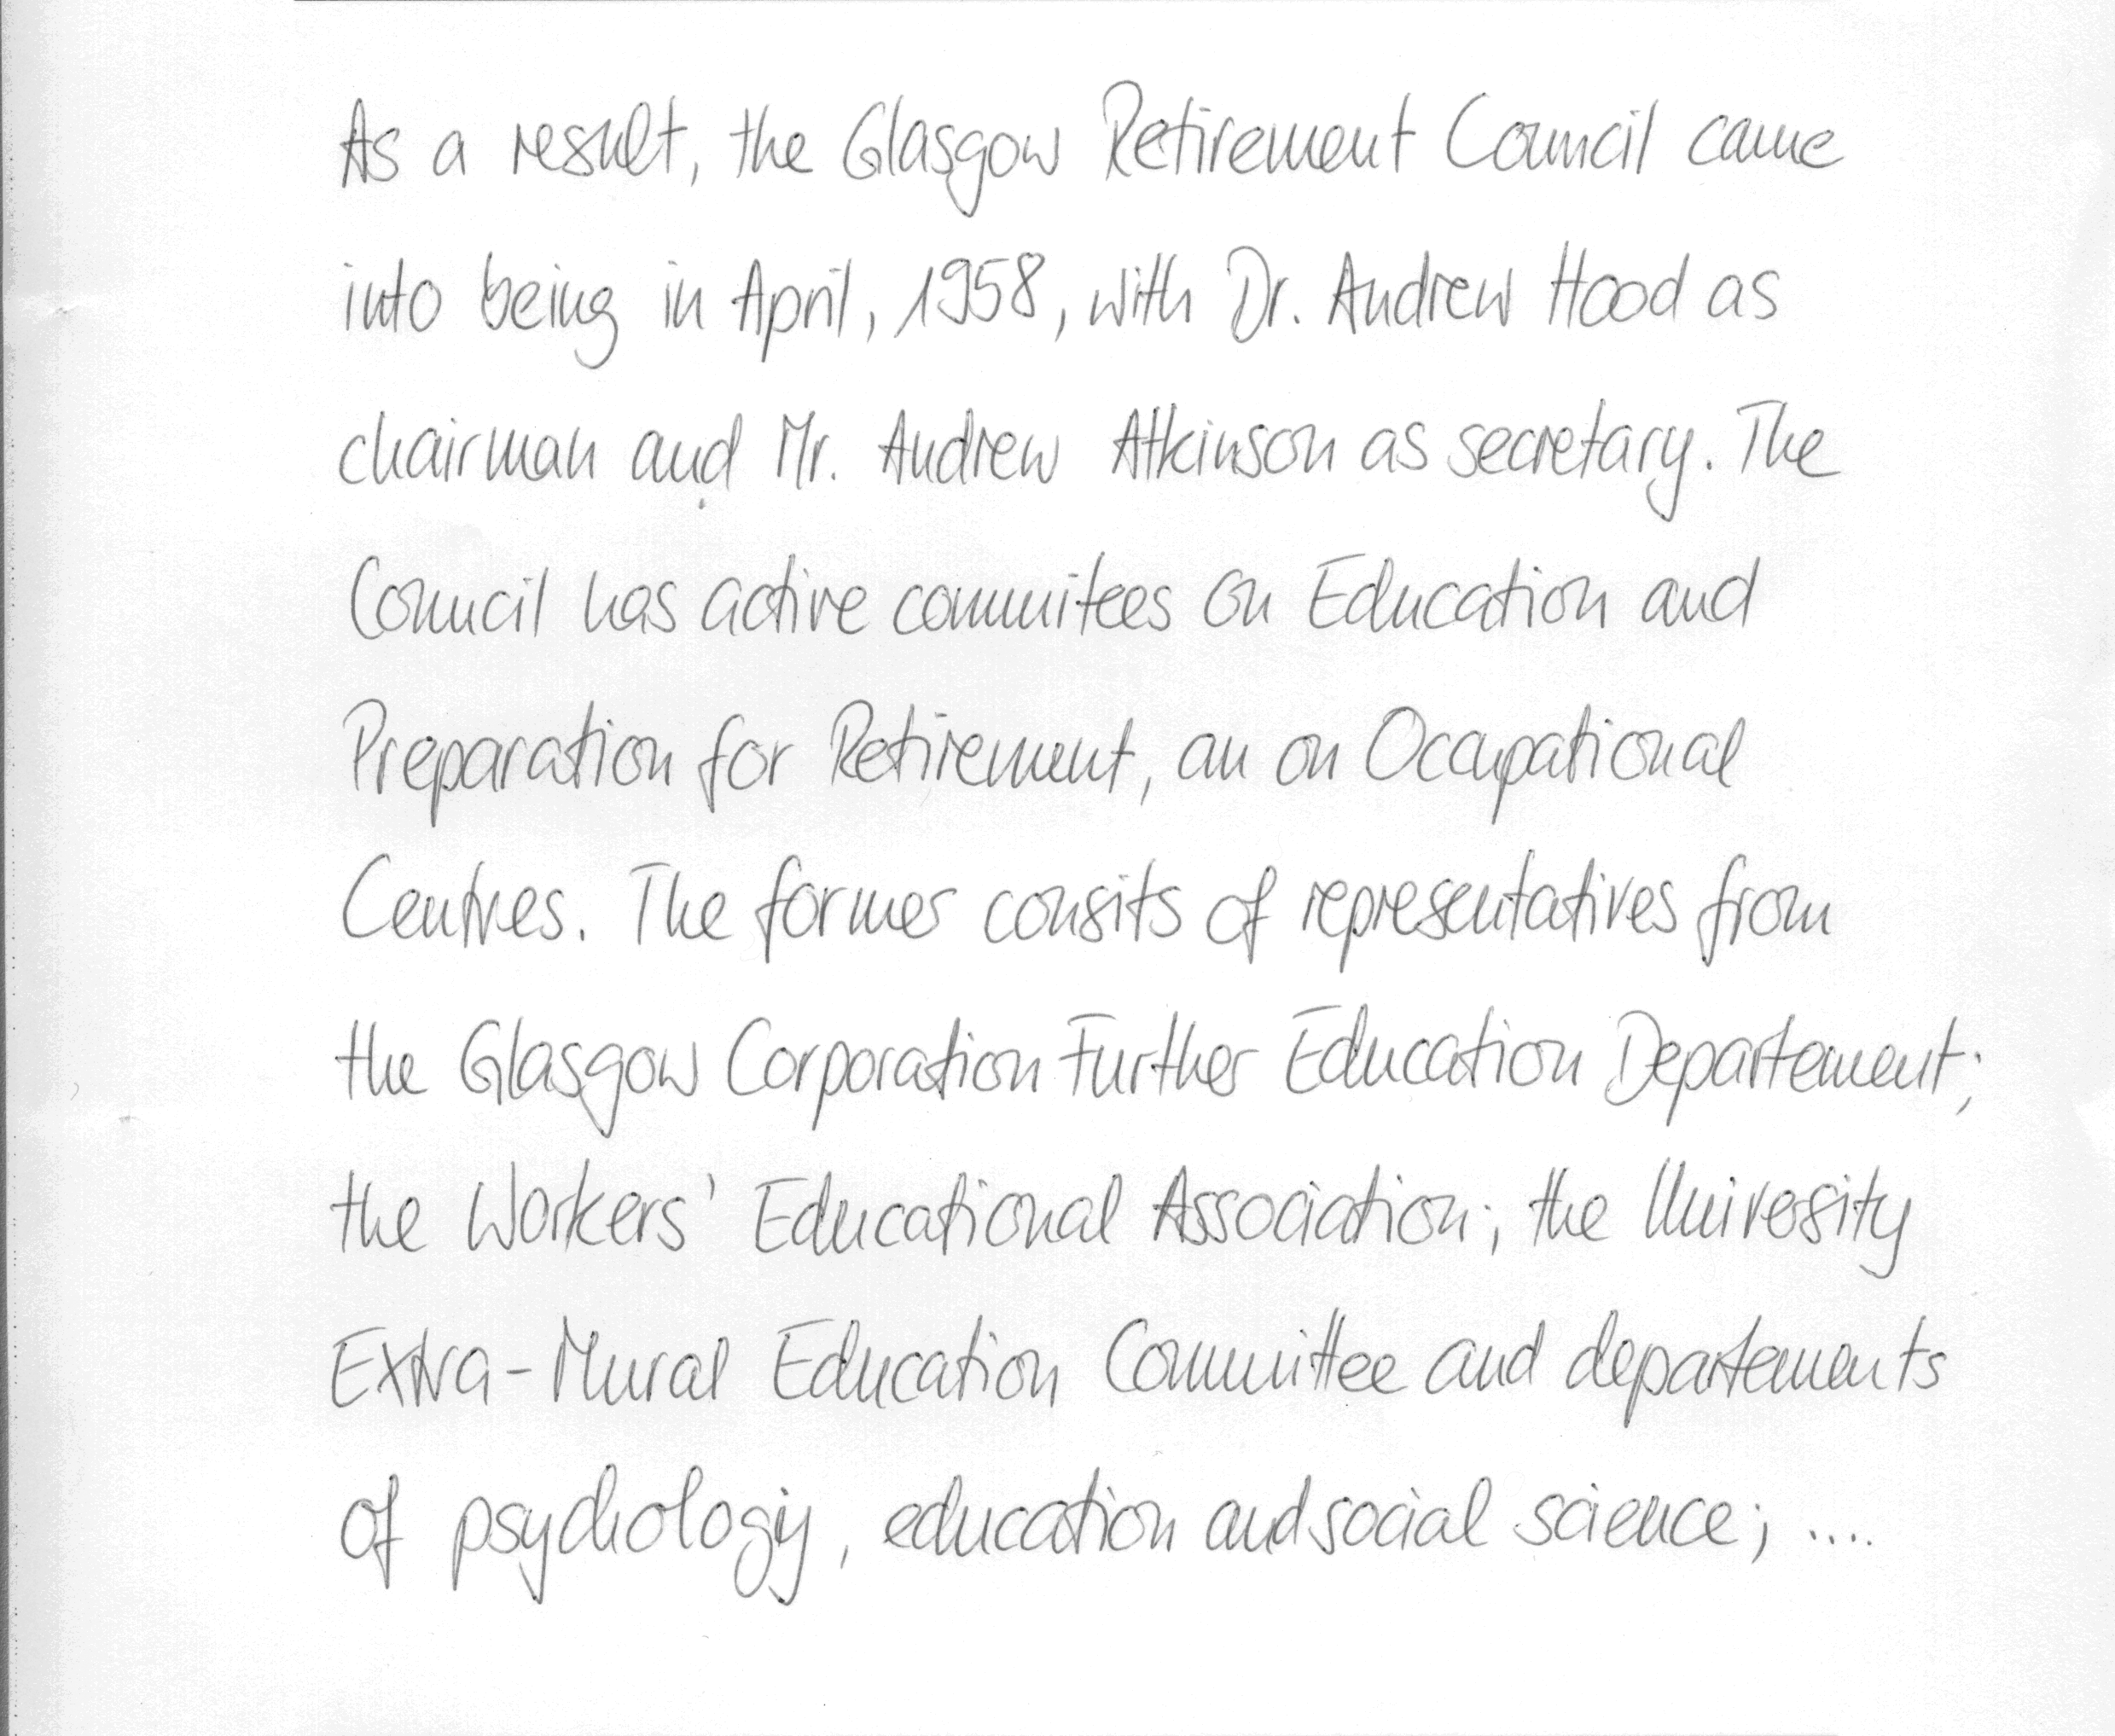 As a result, the Glasgow Retirement Council came
into being in April, 1958, with Dr. Andrew Hood as
chairman and Mr. Andrew Atkinson as secretary. The
Council has active commitees on Education and
Preparation for Retirement, an on Occupational
Centres. The former consits of representatives from
the Glasgow Corporation Further Education Departement;
the Workers' Educational Association; the Univesity
Extra-Mural Education Committee and departements
of psychology, education and social science; ....